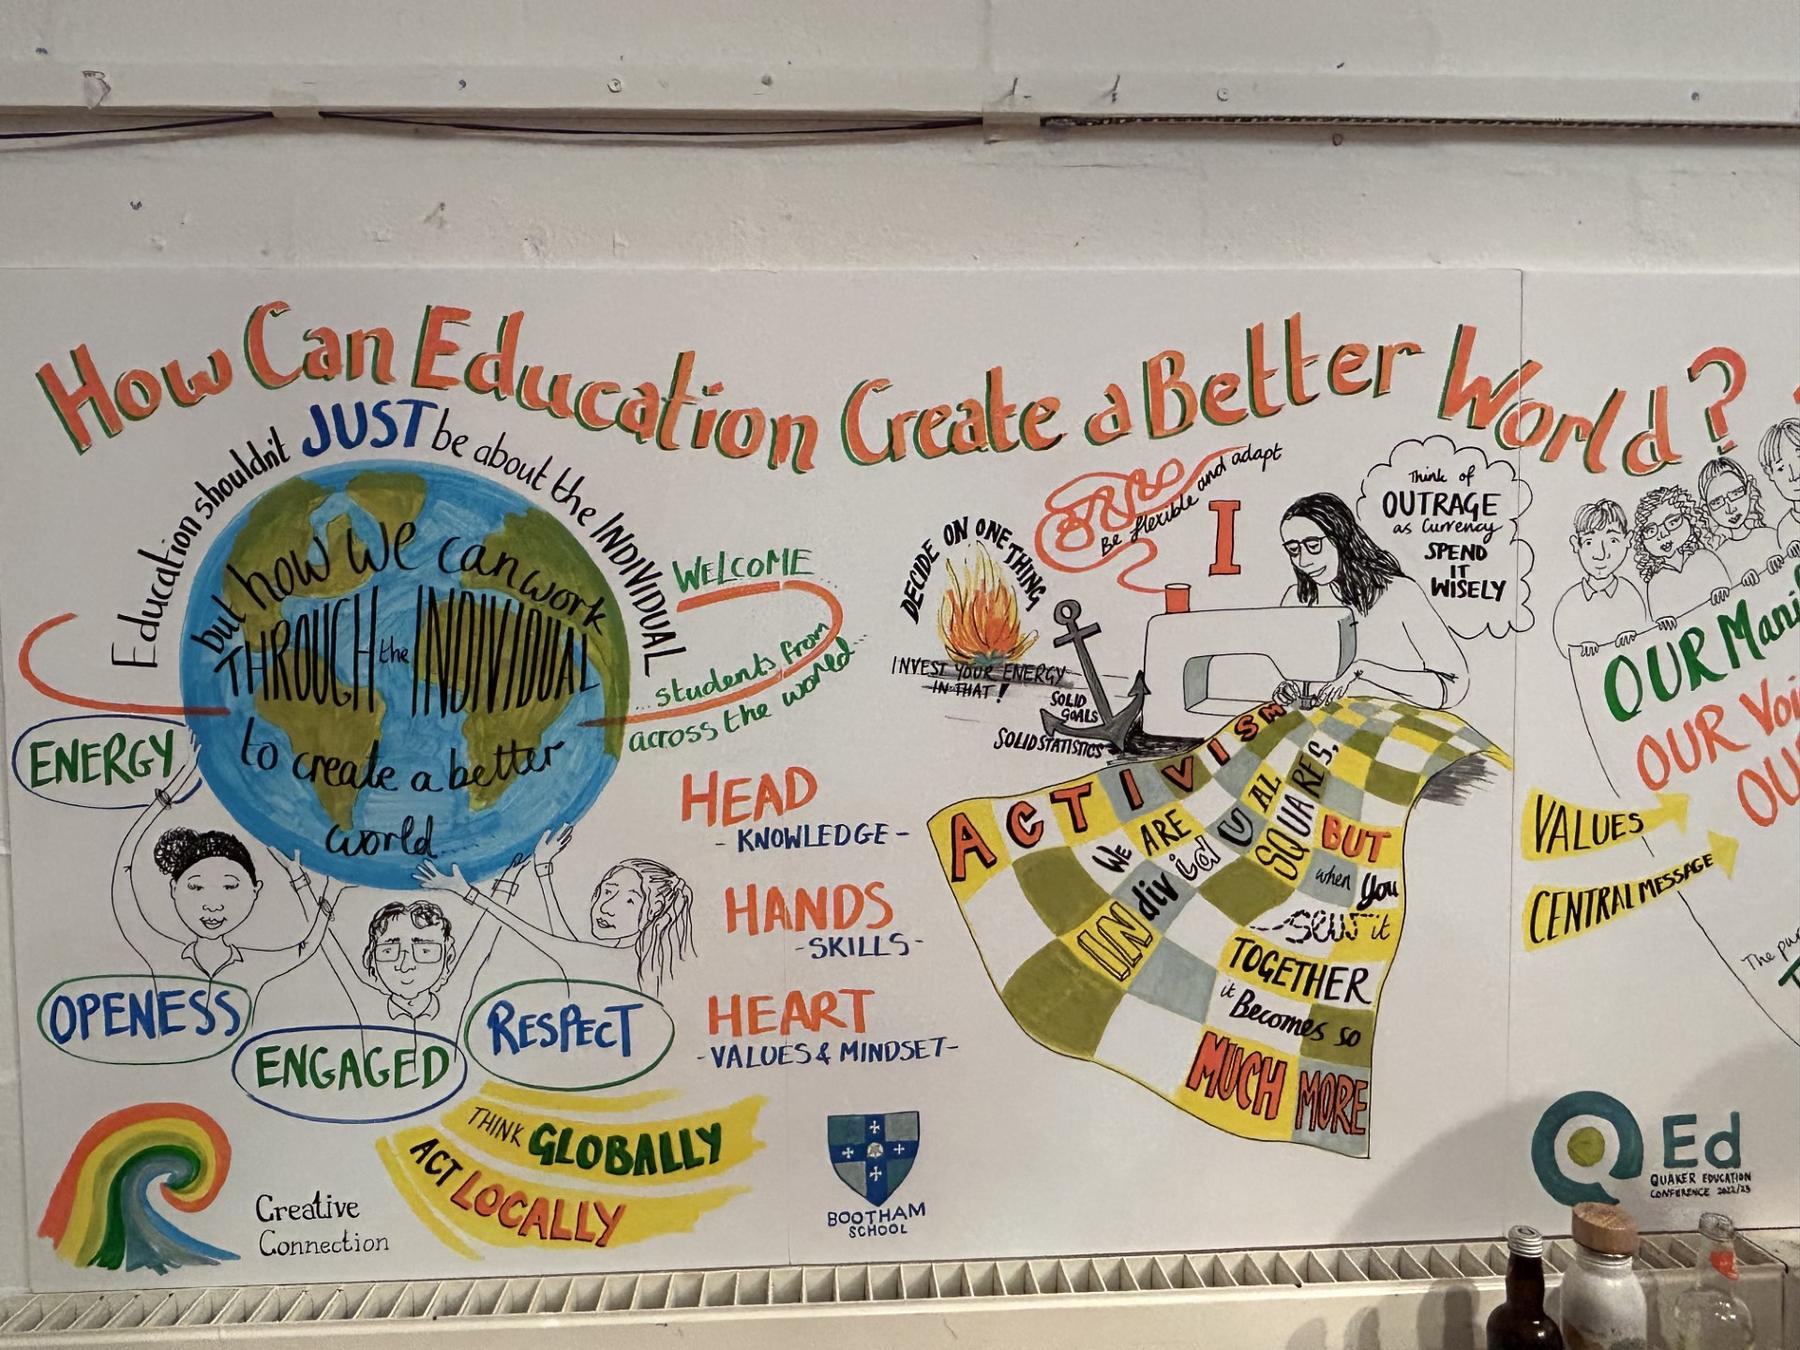 How Can Education Create a Better World?
Education shouldn't JUST be about the INDIVIDUAL
but how we can work
THROUGH the INDIVIDUAL
to create a better
world....
WELCOME
...students from
across the world...
ENERGY
OPENESS
ENGAGED
RESPECT
HEAD
- KNOWLEDGE -
HANDS
- SKILLS -
HEART
- VALUES & MINDSET -
THINK GLOBALLY
ACT LOCALLY
Creative
Connection
BOOTHAM
SCHOOL
DECIDE ON ONE THING
INVEST YOUR ENERGY
IN THAT!
Be flexible and adapt
SOLID
GOALS
SOLID STATISTICS
I
Think of
OUTRAGE
as Currency
SPEND
IT
WISELY
ACTIVISM
We ARE
INdividUAL
SQUARES,
BUT
when you
sew it
TOGETHER
it Becomes so
MUCH MORE
OUR Mani
OUR Voi
OU
VALUES
CENTRAL MESSAGE
The pur
T
QEd
QUAKER EDUCATION
CONFERENCE 2022/23